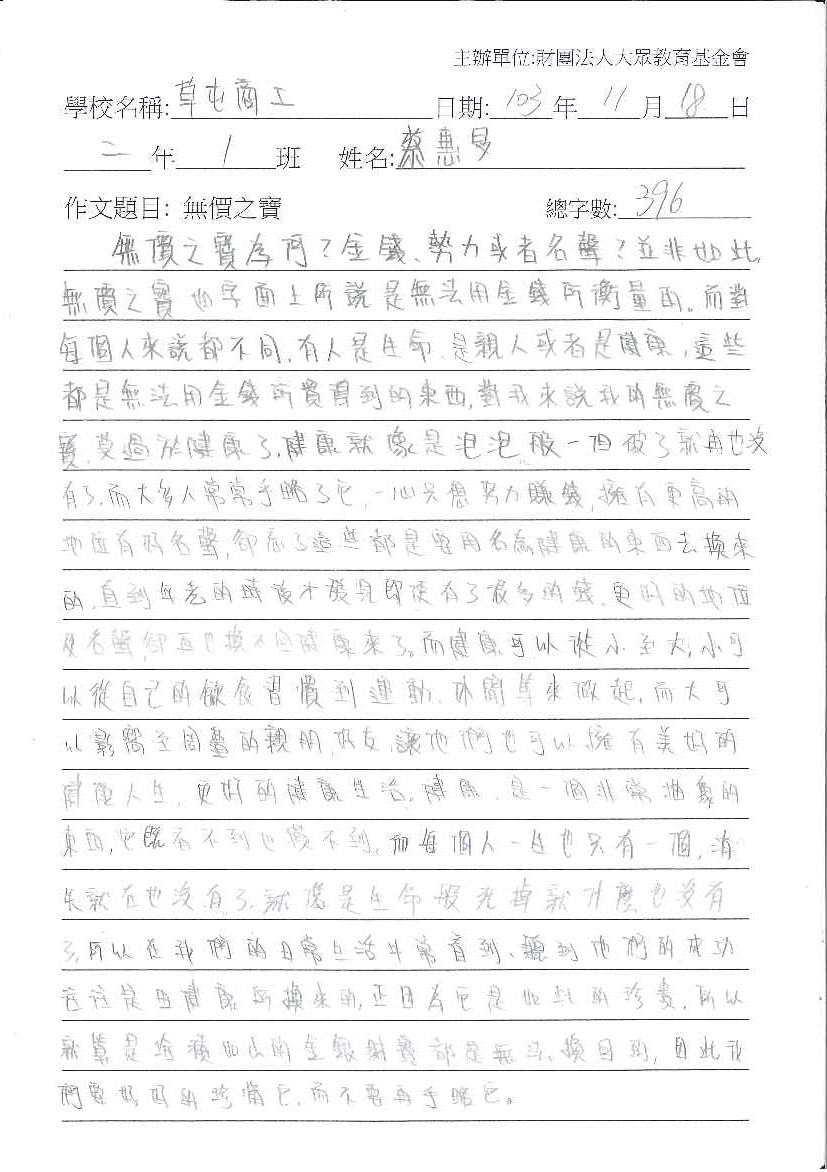 主辦單位:財團法人大眾教育基金會
學校名稱:草屯商工 日期:103年11月18日
二年1班 姓名:蔡惠
作文題目: 無價之寶 總字數:396
無價之寶為何?金錢、勢力或者名聲?並非如此,
無價之寶也字面上所說是無法用金錢所衡量的。而對
每個人來說都不同,有人是生命,是親人或者是健康,這些
都是無法用金錢所買得到的東西,對我來說我的無價之
寶,莫過於健康了,健康就像是泡泡般一但破了就再也沒
有了,而大多人常常乎略了它,一心只想努力賺錢,擁有更高的
地位有好名聲,卻忘了這些都是要用名為健康的東西去換來
的,直到年老的時後才發見即使有了很多的錢、更好的地位
及名聲,卻再也換不回健康來了。而健康可以從小至大,小可
以從自己的飲食習慣到運動、休閒等來做起,而大可
以影響至周疊的親朋、好友,讓他們也可以擁有美好的
健康人生,更好的健康生活。健康,是一個非常抽象的
東西,它既看不到也摸不到,而每個人一生也只有一個,消
失就在也沒有了,就像是生命般死掉就什麼也沒有
了,所以在我們的日常生活中常看到、聽到他們的成功
往往是由健康所換來的,正因為它是如此的珍貴,所以
就算是堆積如山的金銀財寶都是無法換回的,因此我
們要好好的珍惜它,而不要再乎略它。